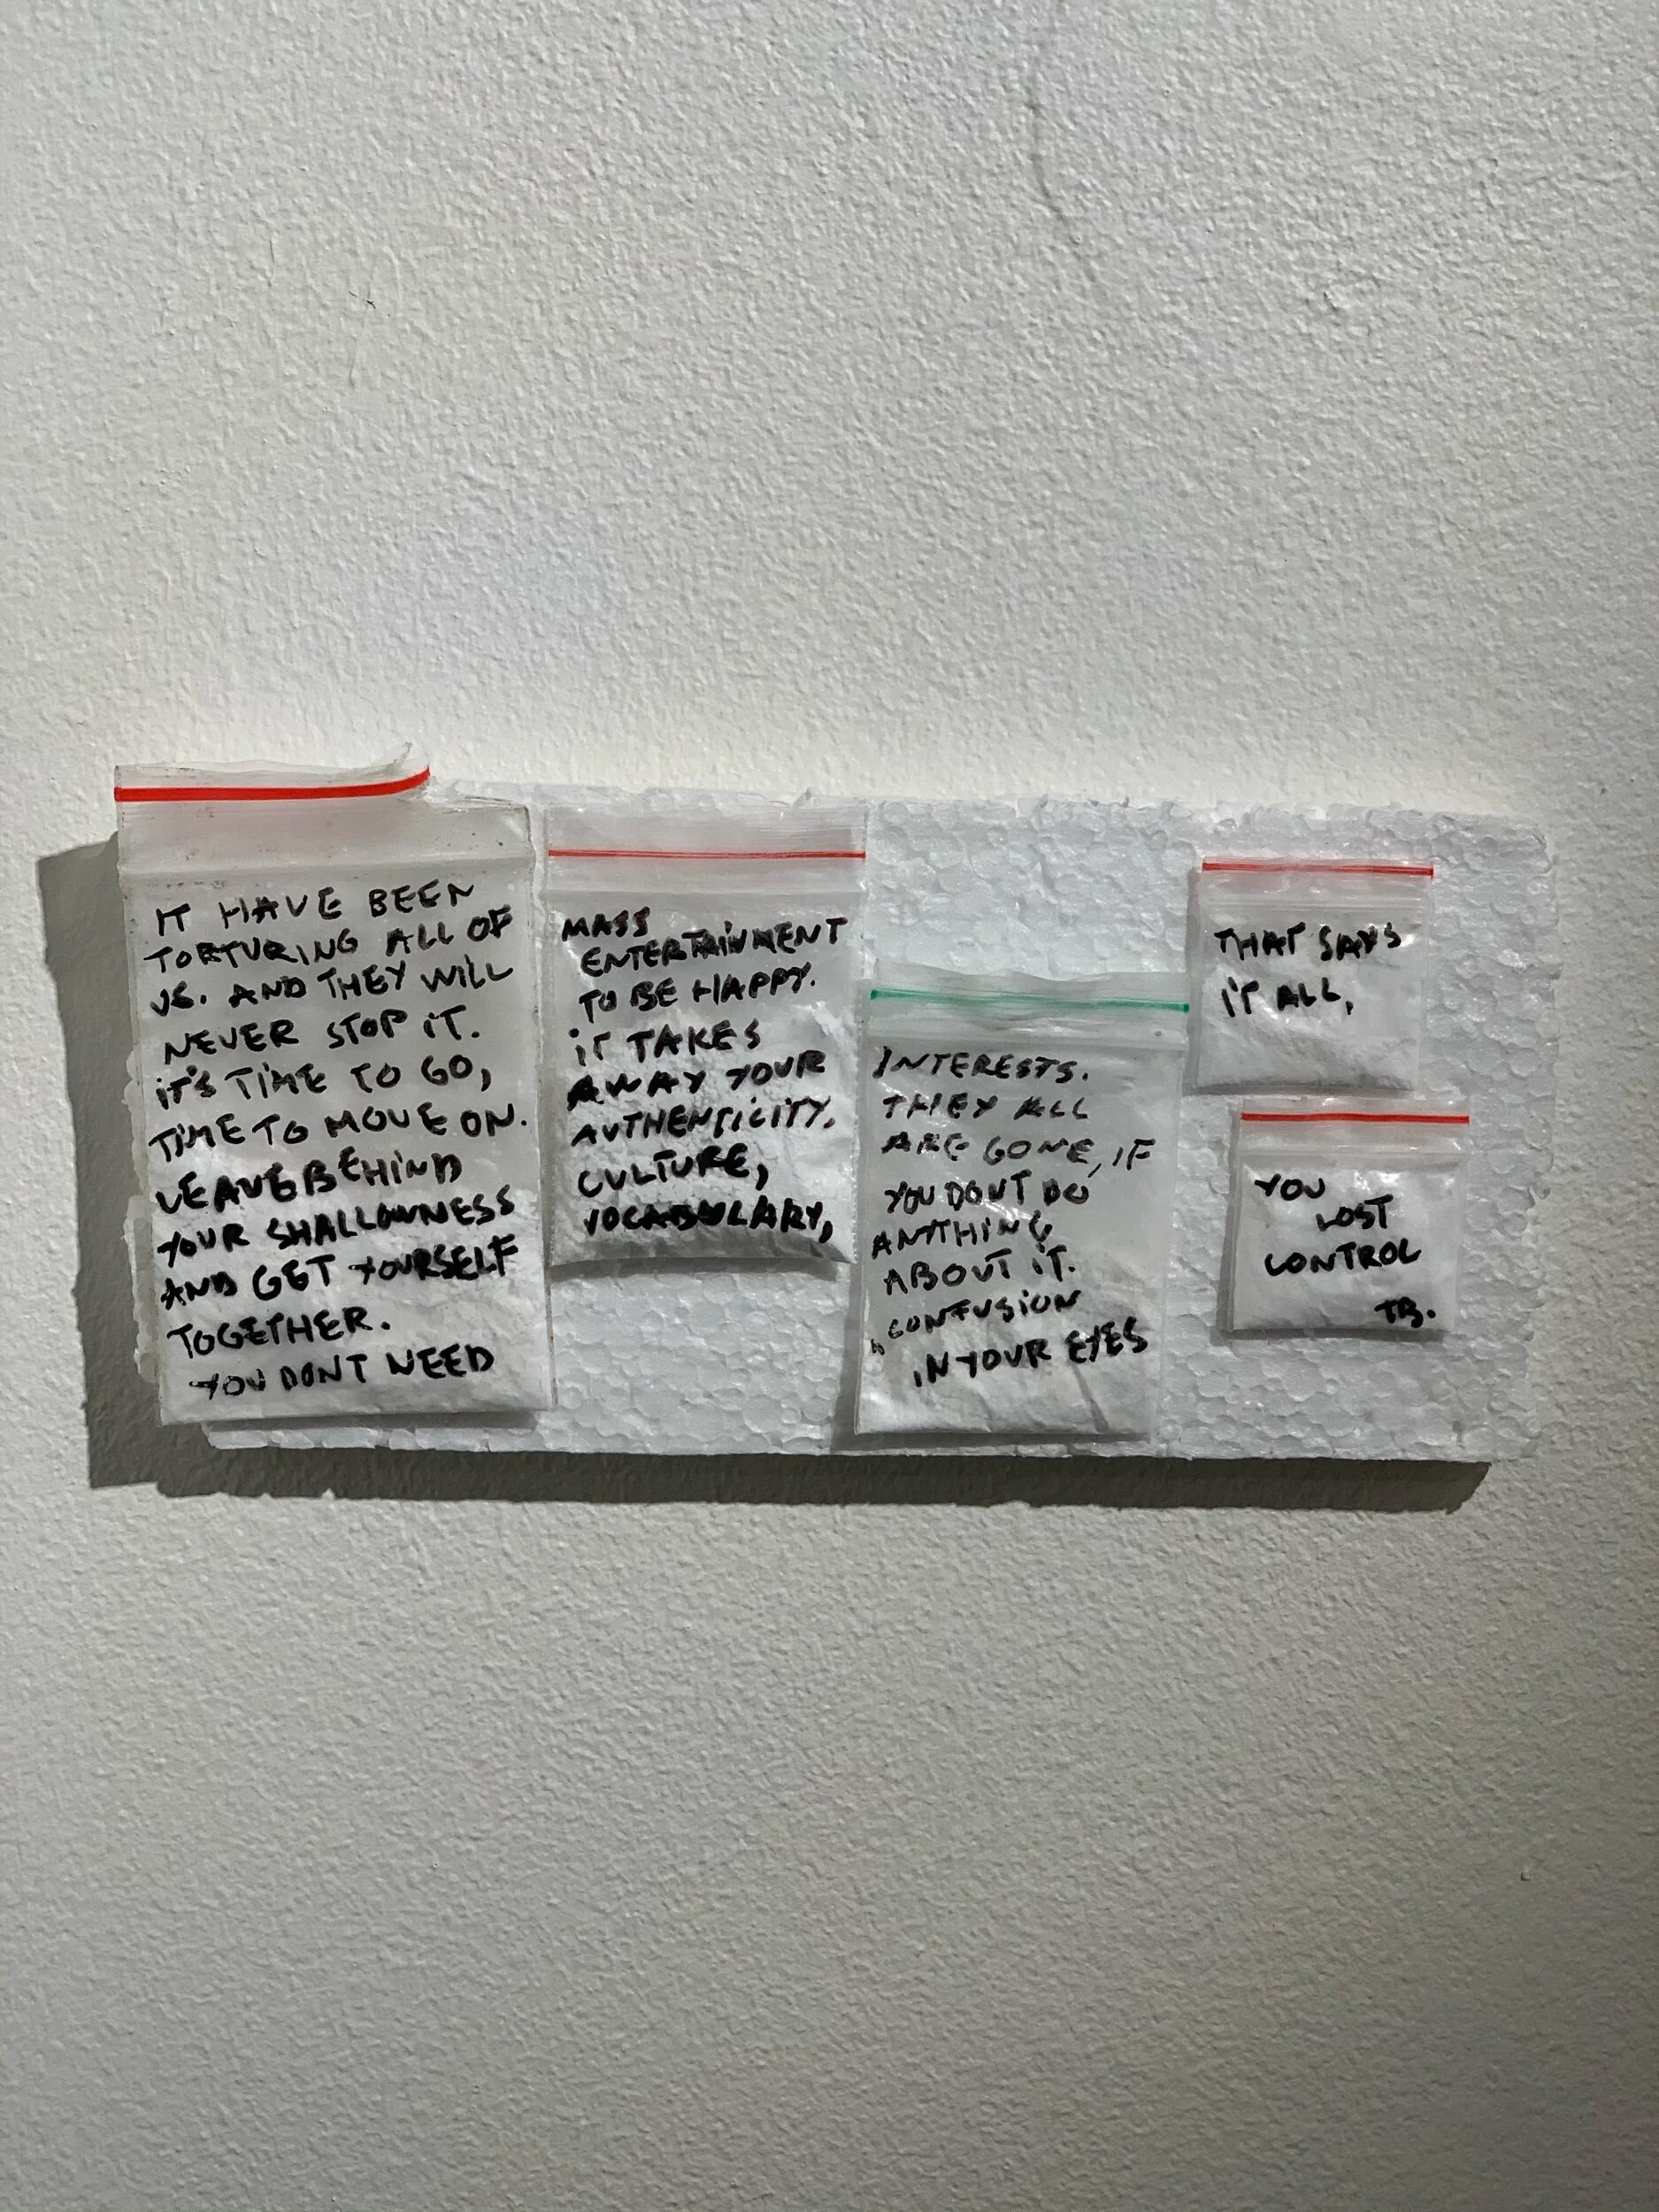 IT HAVE BEEN
TORTURING ALL OF
US. AND THEY WILL
NEVER STOP IT.
IT'S TIME TO GO,
TIME TO MOVE ON.
LEAVE BEHIND
YOUR SHALLOWNESS
AND GET YOURSELF
TOGETHER.
YOU DONT NEED
MASS
ENTERTAINMENT
TO BE HAPPY.
IT TAKES
AWAY YOUR
AUTHENTICITY,
CULTURE,
VOCABULARY,
INTERESTS.
THEY ALL
ARE GONE, IF
YOU DONT DO
ANYTHING
ABOUT IT.
"CONFUSION
IN YOUR EYES
THAT SAYS
IT ALL,
YOU
LOST
CONTROL
TB.